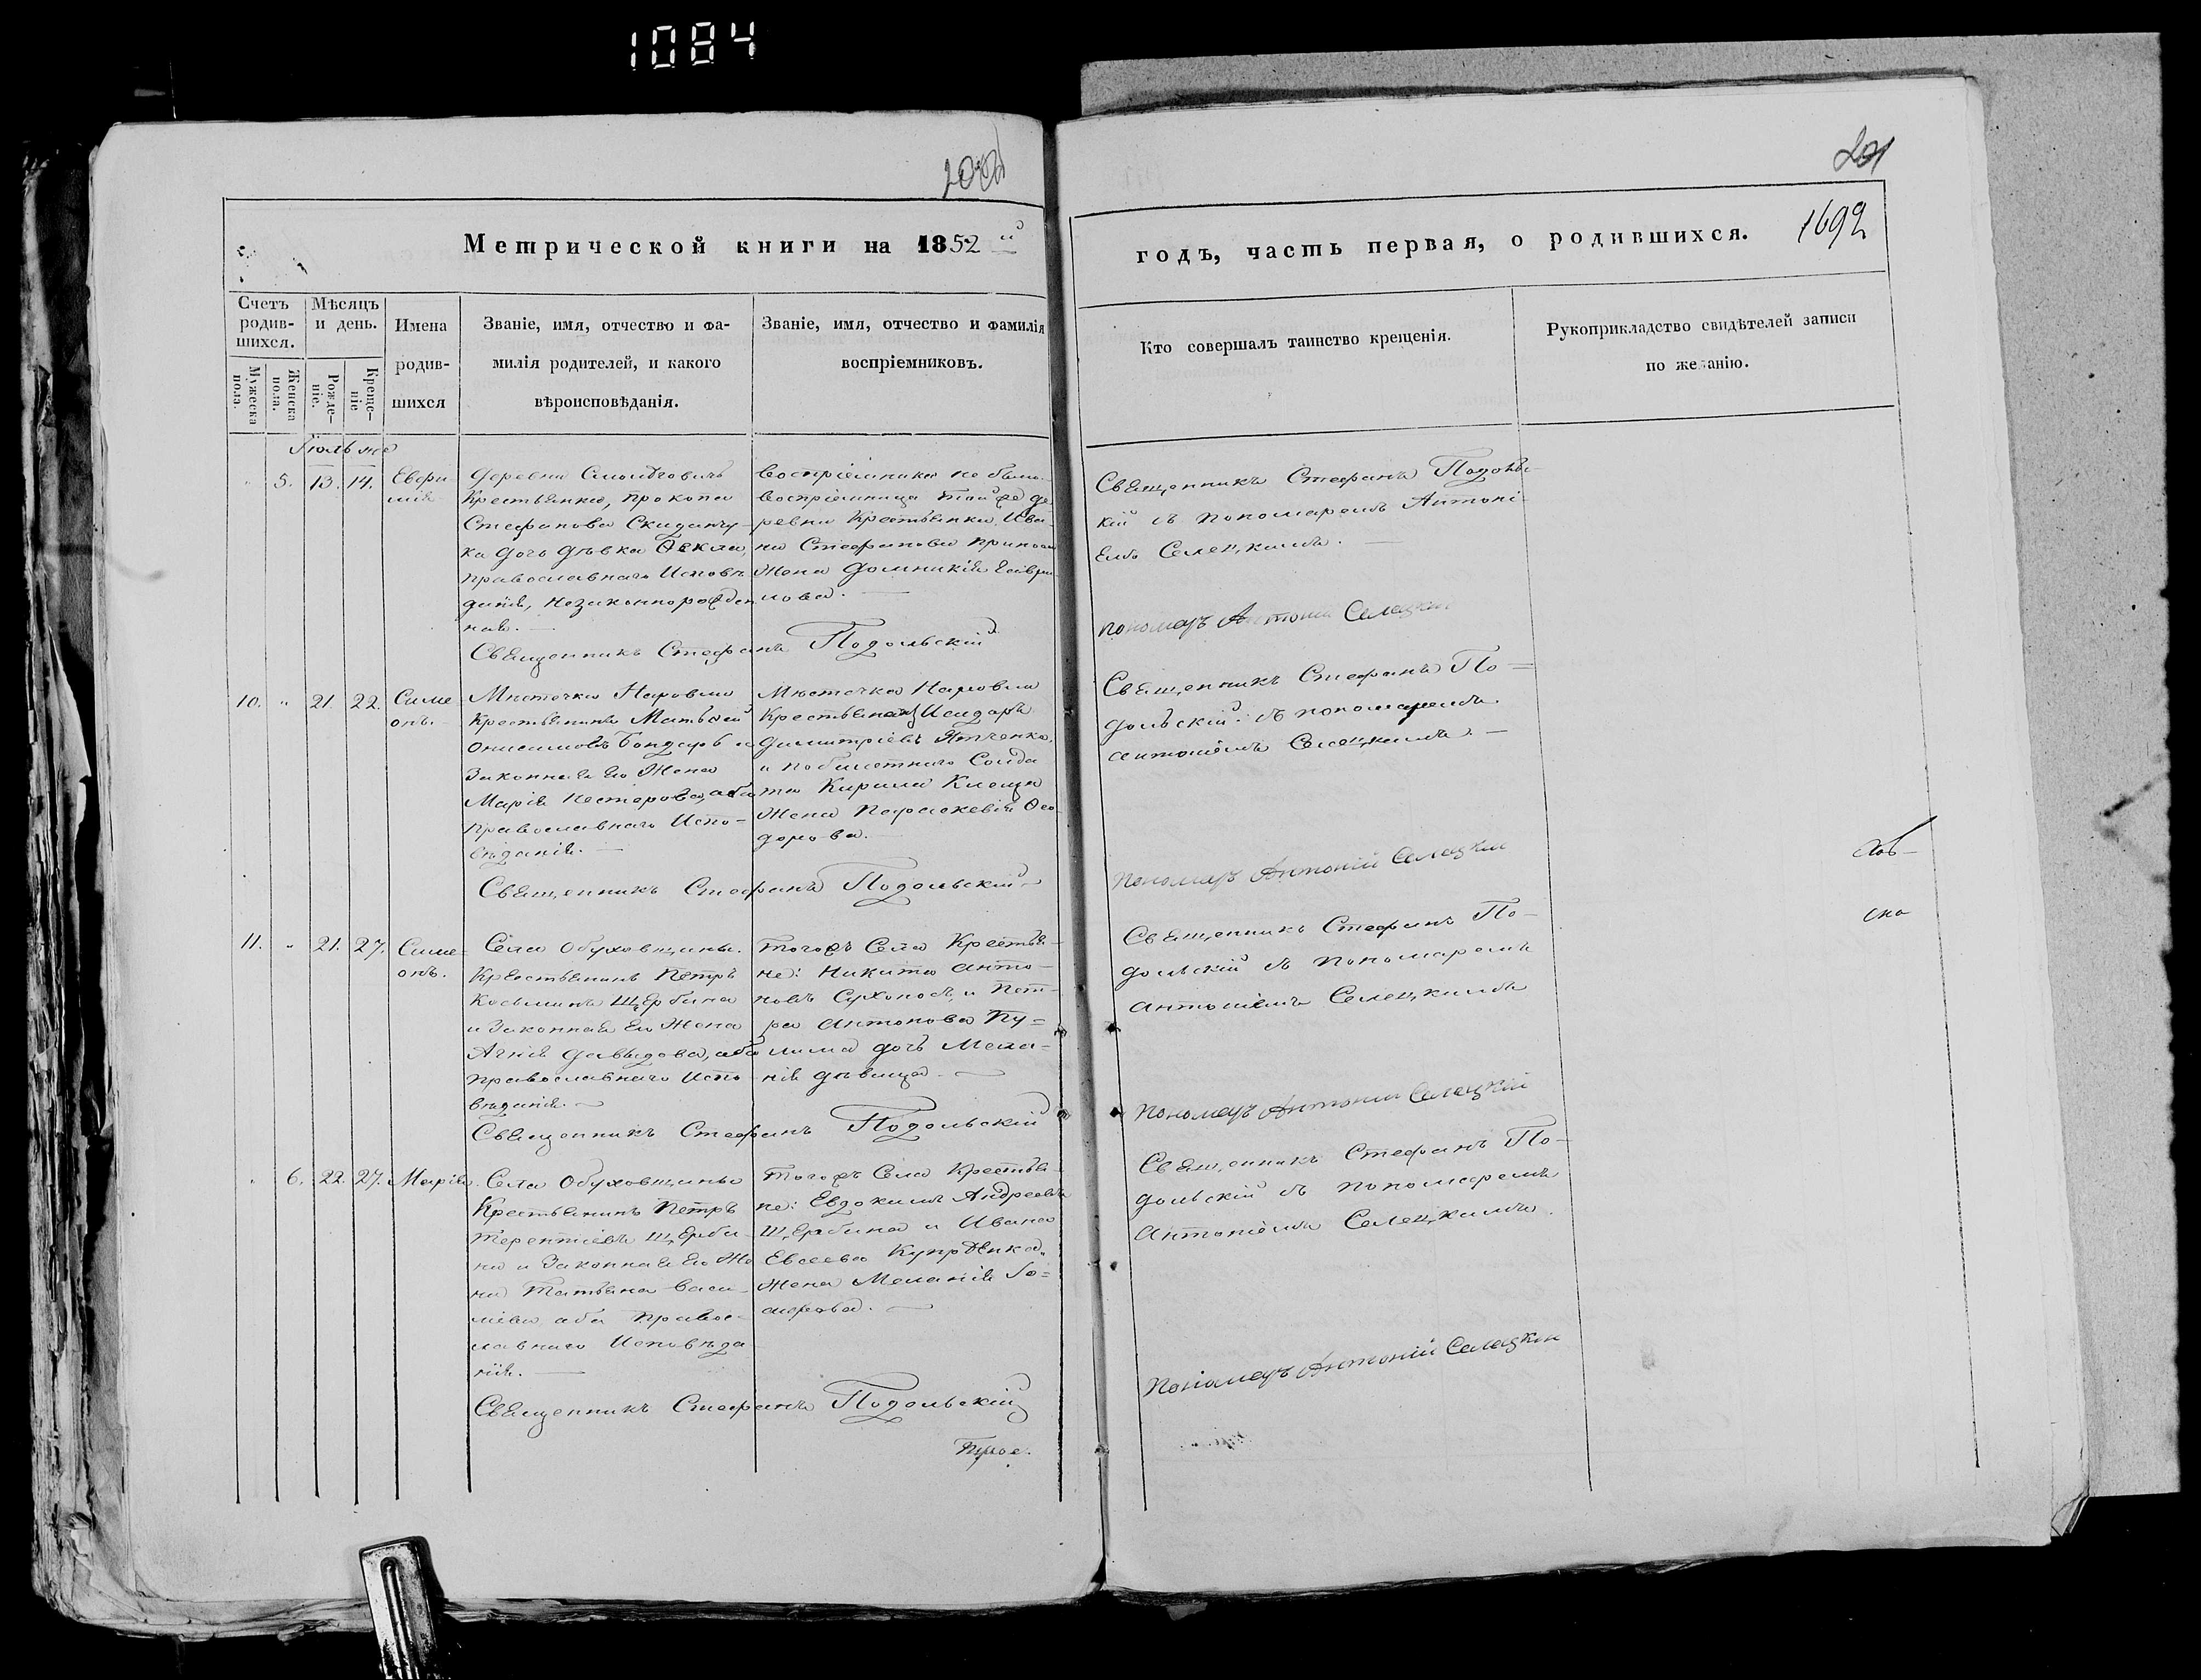 1084
201
Метрической книги на 1852 й
годъ, часть первая, о родившихся. 1692
Счетъ родив-шихся.
Мужеска пола.
Женска пола.
Мѣсяцъ и день.
Рожде-ніе.
Креще-ніе
Имена
родив-
шихся
Званіе, имя, отчество и фа-
милія родителей, и какого
вѣроисповѣданія.
Званіе, имя, отчество и фамилія
воспріемниковъ.
Кто совершалъ таинство крещенія.
Рукоприкладство свидѣтелей записи
по желанію.
Іюль мѣ
" 5. 13. 14. Евфи-
мія
Деревни
Крестьянки, Прокопа
Стефанова Скиданчу-
ка дочь дѣвка Ѳекла,
православнаго Исповѣ
данія, незаконнорожден
ная. —
Воспріемника не было.
Воспріемница той же де
ревни Крестьянина Ива-
на Стефанова
Жена Домникія Гаври-
лова. —
Священникъ Стефанъ Подольскій
Священникъ Стефанъ Подоль-
кій съ пономаремъ Антоні-
емъ Селецкимъ. —
пономарь Антоній Селецкій
10. " 21. 22. Симе
онъ.
Мѣстечка Наровли
Крестьянинъ Матвей
Онисимовъ Бондарь и
Законная его Жена
Марія Нестерова, оба
православнаго Испо-
вѣданія. —
Мѣстечка Наровли
Крестьянинъ Исидоръ
Димитріевъ Ятченко,
и побилетнаго Солда
та Кирила Клоща
Жена Параскевія Ѳео
дорова. —
Священникъ Стефанъ Подольскій
Священникъ Стефанъ По=
дольскій съ пономаремъ
антоніемъ Селецкимъ. —
Пономарь Антоній Селецкій
11. " 21. 27. Симе-
онъ.
Села Обуховщины.
Крестьянинъ Петръ
Косьминъ Щербина
и Законная его Жена
Агнія Давыдова, оба
православнаго Испо
вѣданія. —
Тогожъ Села Крестья-
не: Никита Анто-
новъ Сухоносъ, и Пет-
ра Антонова Ку=
лима дочь Мела-
нія дѣвица. —
Священникъ Стефанъ Подольскій
Священникъ Стефанъ По-
дольскій съ Пономаремъ
Антоніемъ Селецкимъ
Пономарь Антоній Селецкій
" 6. 22. 27. Марія.
Села Обуховщины
Крестьянинъ Петръ
Терентіевъ Щерби-
на и Законная его Же
на Татьяна Васи-
ліева, оба Право-
лавнаго Исповѣда
нія. —
Тогожъ Села Крестья-
не: Евдокимъ Андреевъ
Щербина и Ивана
Евсеева Купрѣенка,
Жена Меланія
Священникъ Стефанъ Подольскій
Священникъ Стефанъ По-
дольскій съ пономаремъ
Антоніемъ Селецкимъ.
Пономарь Антоній Селецкій